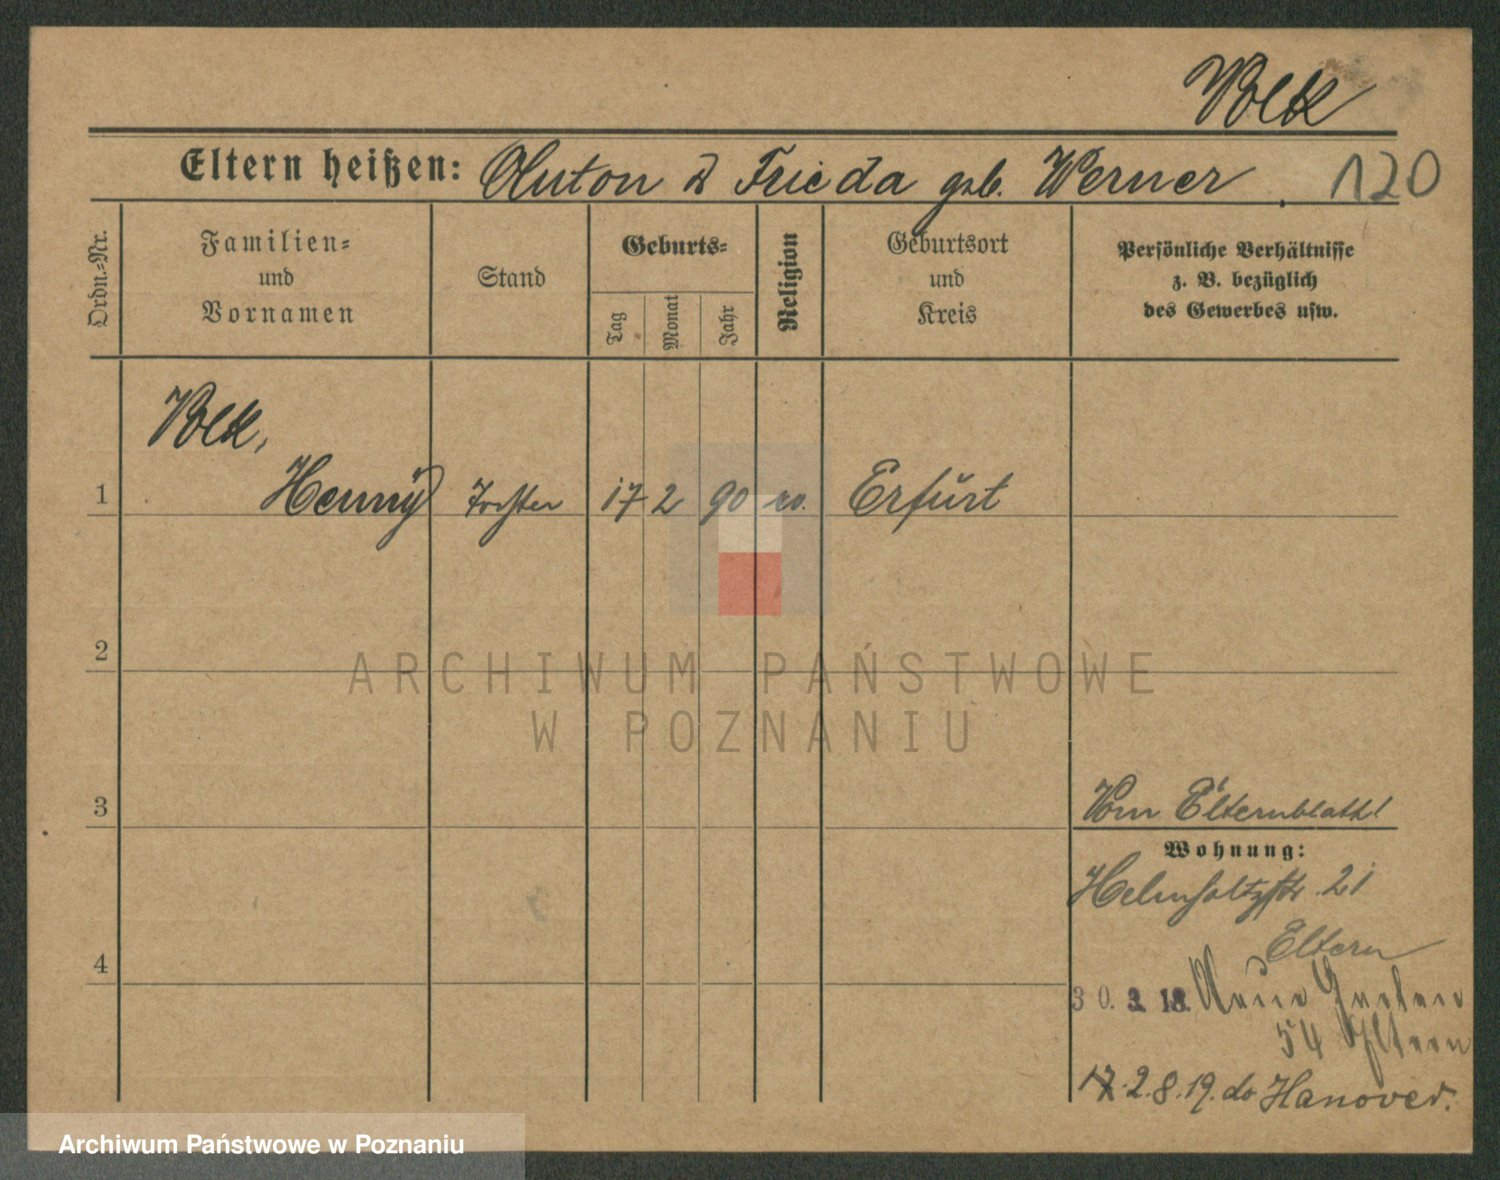 Volk
Eltern heißen: Anton & Frieda geb. Werner. 120
Ordn.-Nr.
Familien-
und
Vornamen
Stand
Geburts-
Tag
Monat
Jahr
Religion
Geburtsort
und
Kreis
Persönliche Verhältnisse
z. B. bezüglich
des Gewerbes usw.
Volk,
1 Henny Tochter 17 2 90 Erfurt
2
ARCHIWUM PAŃSTWOWE
W POZNANIU
3 Vom Elternblatt!
Wohnung:
Helmholtzstr. 21
Eltern
4
30. 3. 18. Neue Garten
54 Eltern
2.8.19. do Hanover.
Archiwum Państwowe w Poznaniu